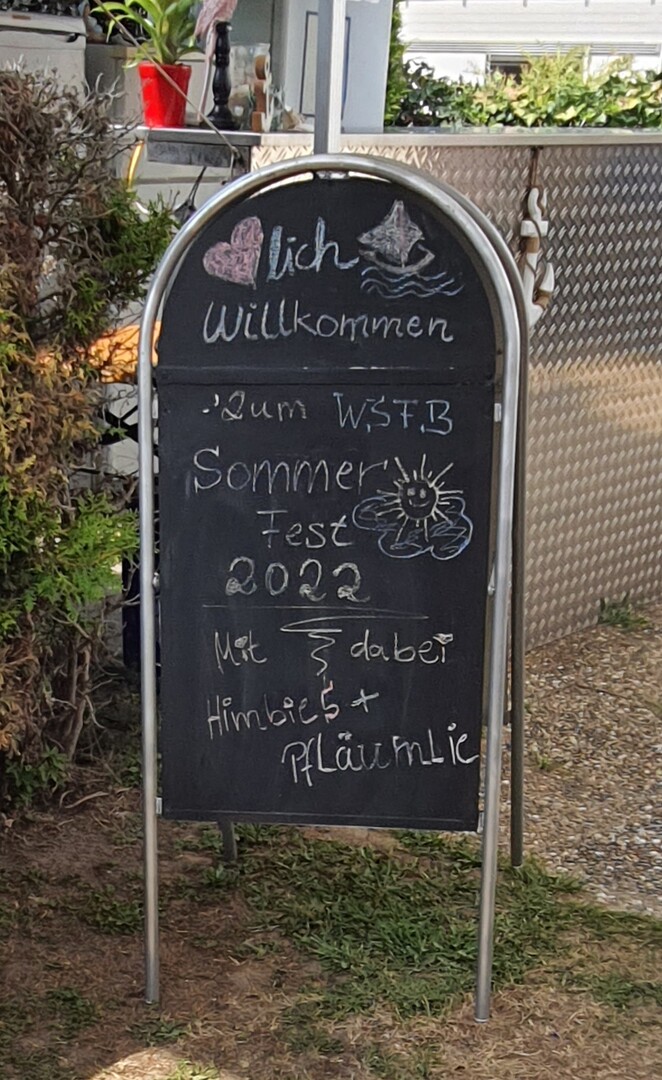 lich
Willkommen
Zum W.S.F.B
Sommer
Fest
2022
Mit dabei
Himbies +
Pfläumlie